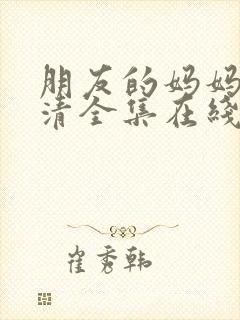 朋友的妈妈
清全集在线
崔秀韩